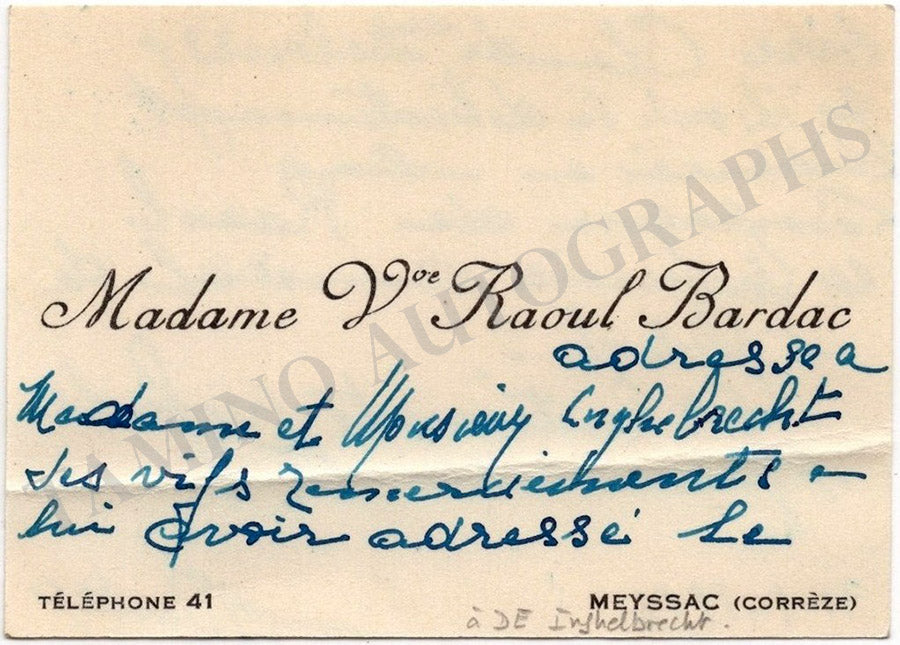 Madame Vve Raoul Bardac
adresse a
Madame et Monsieur Inghelbrecht
ses vifs remerciements
lui avoir adressé le
TÉLÉPHONE 41
MEYSSAC (CORRÈZE)
à DE Inghelbrecht.
TAMINO AUTOGRAPHS